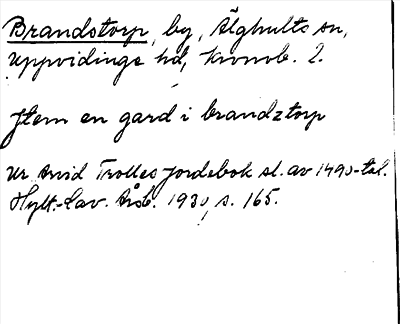 Brandstorp, by, Älghults sn,
Uppvidinge hd, Kronob. l.
Jtem en gard i brandztorp
Ur Arvid Trolles Jordebok sl. av 1490-tal.
Hylt.-Cav. Årsb. 1930, s. 165.